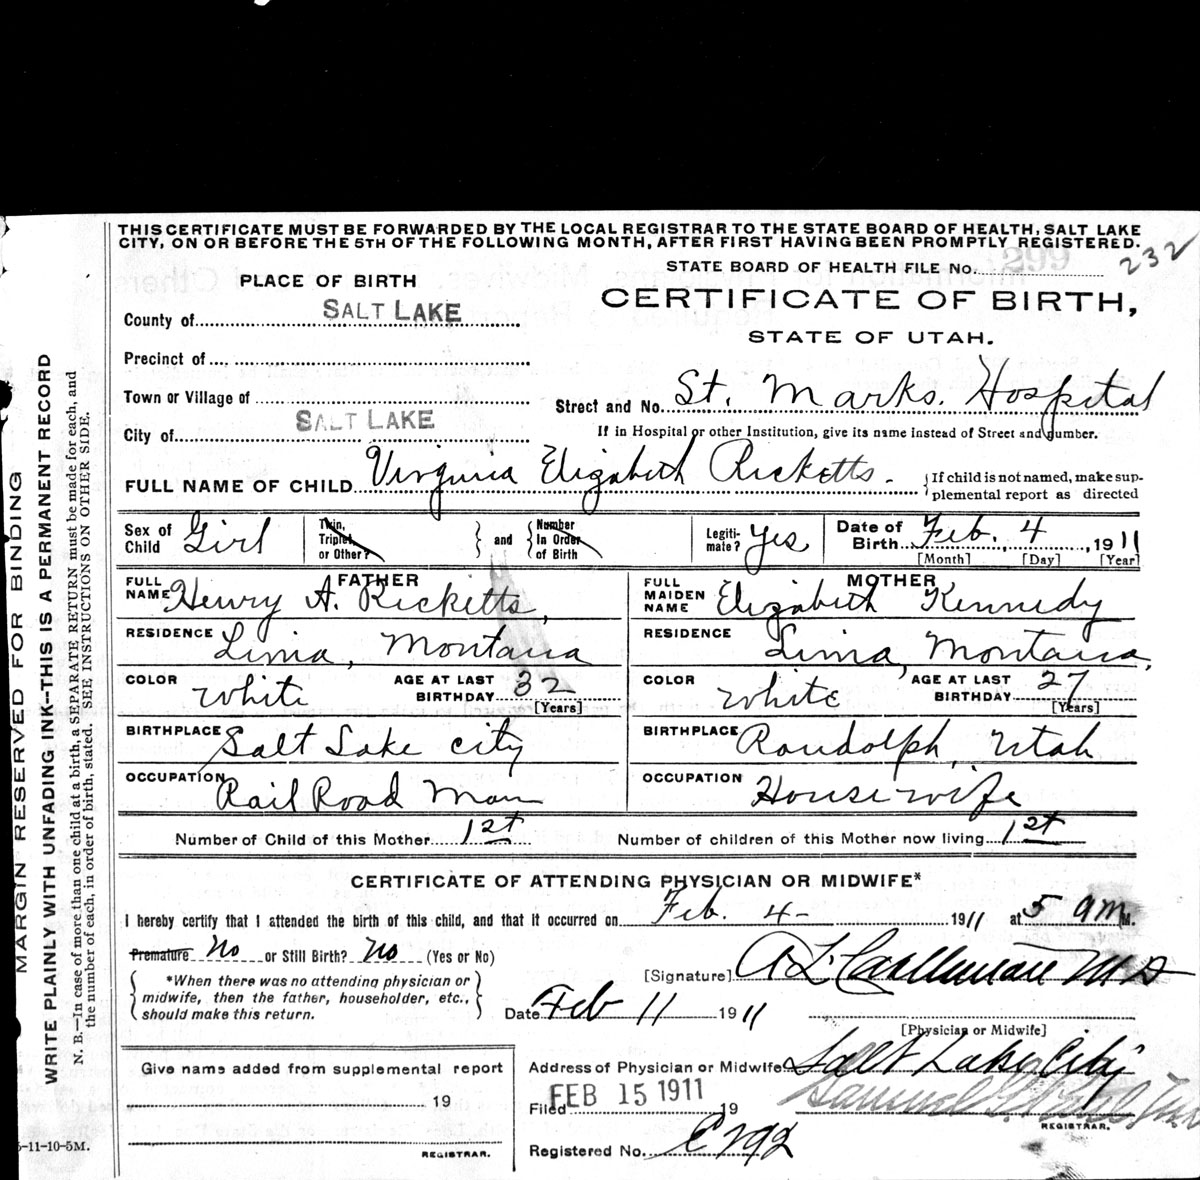 THIS CERTIFICATE MUST BE FORWARDED BY THE LOCAL REGISTRAR TO THE STATE BOARD OF HEALTH, SALT LAKE
CITY, ON OR BEFORE THE 5TH OF THE FOLLOWING MONTH, AFTER FIRST HAVING BEEN PROMPTLY REGISTERED.
232
STATE BOARD OF HEALTH FILE No. 299
PLACE OF BIRTH
CERTIFICATE OF BIRTH,
STATE OF UTAH.
County of SALT LAKE
Precinct of
Town or Village of
City of SALT LAKE
Street and No. St. Marks. Hospital
If in Hospital or other Institution, give its name instead of Street and number.
FULL NAME OF CHILD Virginia Elizabeth Ricketts.
{If child is not named, make sup-
plemental report as directed
Sex of Child Girl
Twin, Triplet, or Other? } and { Number In Order of Birth
Legiti-mate? Yes
Date of Birth Feb. 4, 1911
[Month] [Day] [Year]
FATHER
FULL NAME Henry A. Ricketts,
RESIDENCE Lima, Montana
COLOR White AGE AT LAST BIRTHDAY 32 [Years]
BIRTHPLACE Salt Lake City
OCCUPATION Rail Road Man
MOTHER
FULL MAIDEN NAME Elizabeth Kennedy
RESIDENCE Lima, Montana,
COLOR White AGE AT LAST BIRTHDAY 27 [Years]
BIRTHPLACE Randolph, Utah
OCCUPATION Housewife
Number of Child of this Mother 1st Number of children of this Mother now living 1st
CERTIFICATE OF ATTENDING PHYSICIAN OR MIDWIFE*
I hereby certify that I attended the birth of this child, and that it occurred on Feb. 4- 1911 at 5 am M.
Premature No or Still Birth? No (Yes or No)
{ *When there was no attending physician or
midwife, then the father, householder, etc.,
should make this return. }
[Signature] A L MD
Date Feb 11 1911
[Physician or Midwife]
Give name added from supplemental report
19
REGISTRAR.
Address of Physician or Midwife Salt Lake City
Filed FEB 15 1911 19
Samuel G.
REGISTRAR.
Registered No.
5-11-10-5M.
MARGIN RESERVED FOR BINDING
WRITE PLAINLY WITH UNFADING INK–THIS IS A PERMANENT RECORD
N. B.—In case of more than one child at a birth, a SEPARATE RETURN must be made for each, and
the number of each, in order of birth, stated. SEE INSTRUCTIONS ON OTHER SIDE.